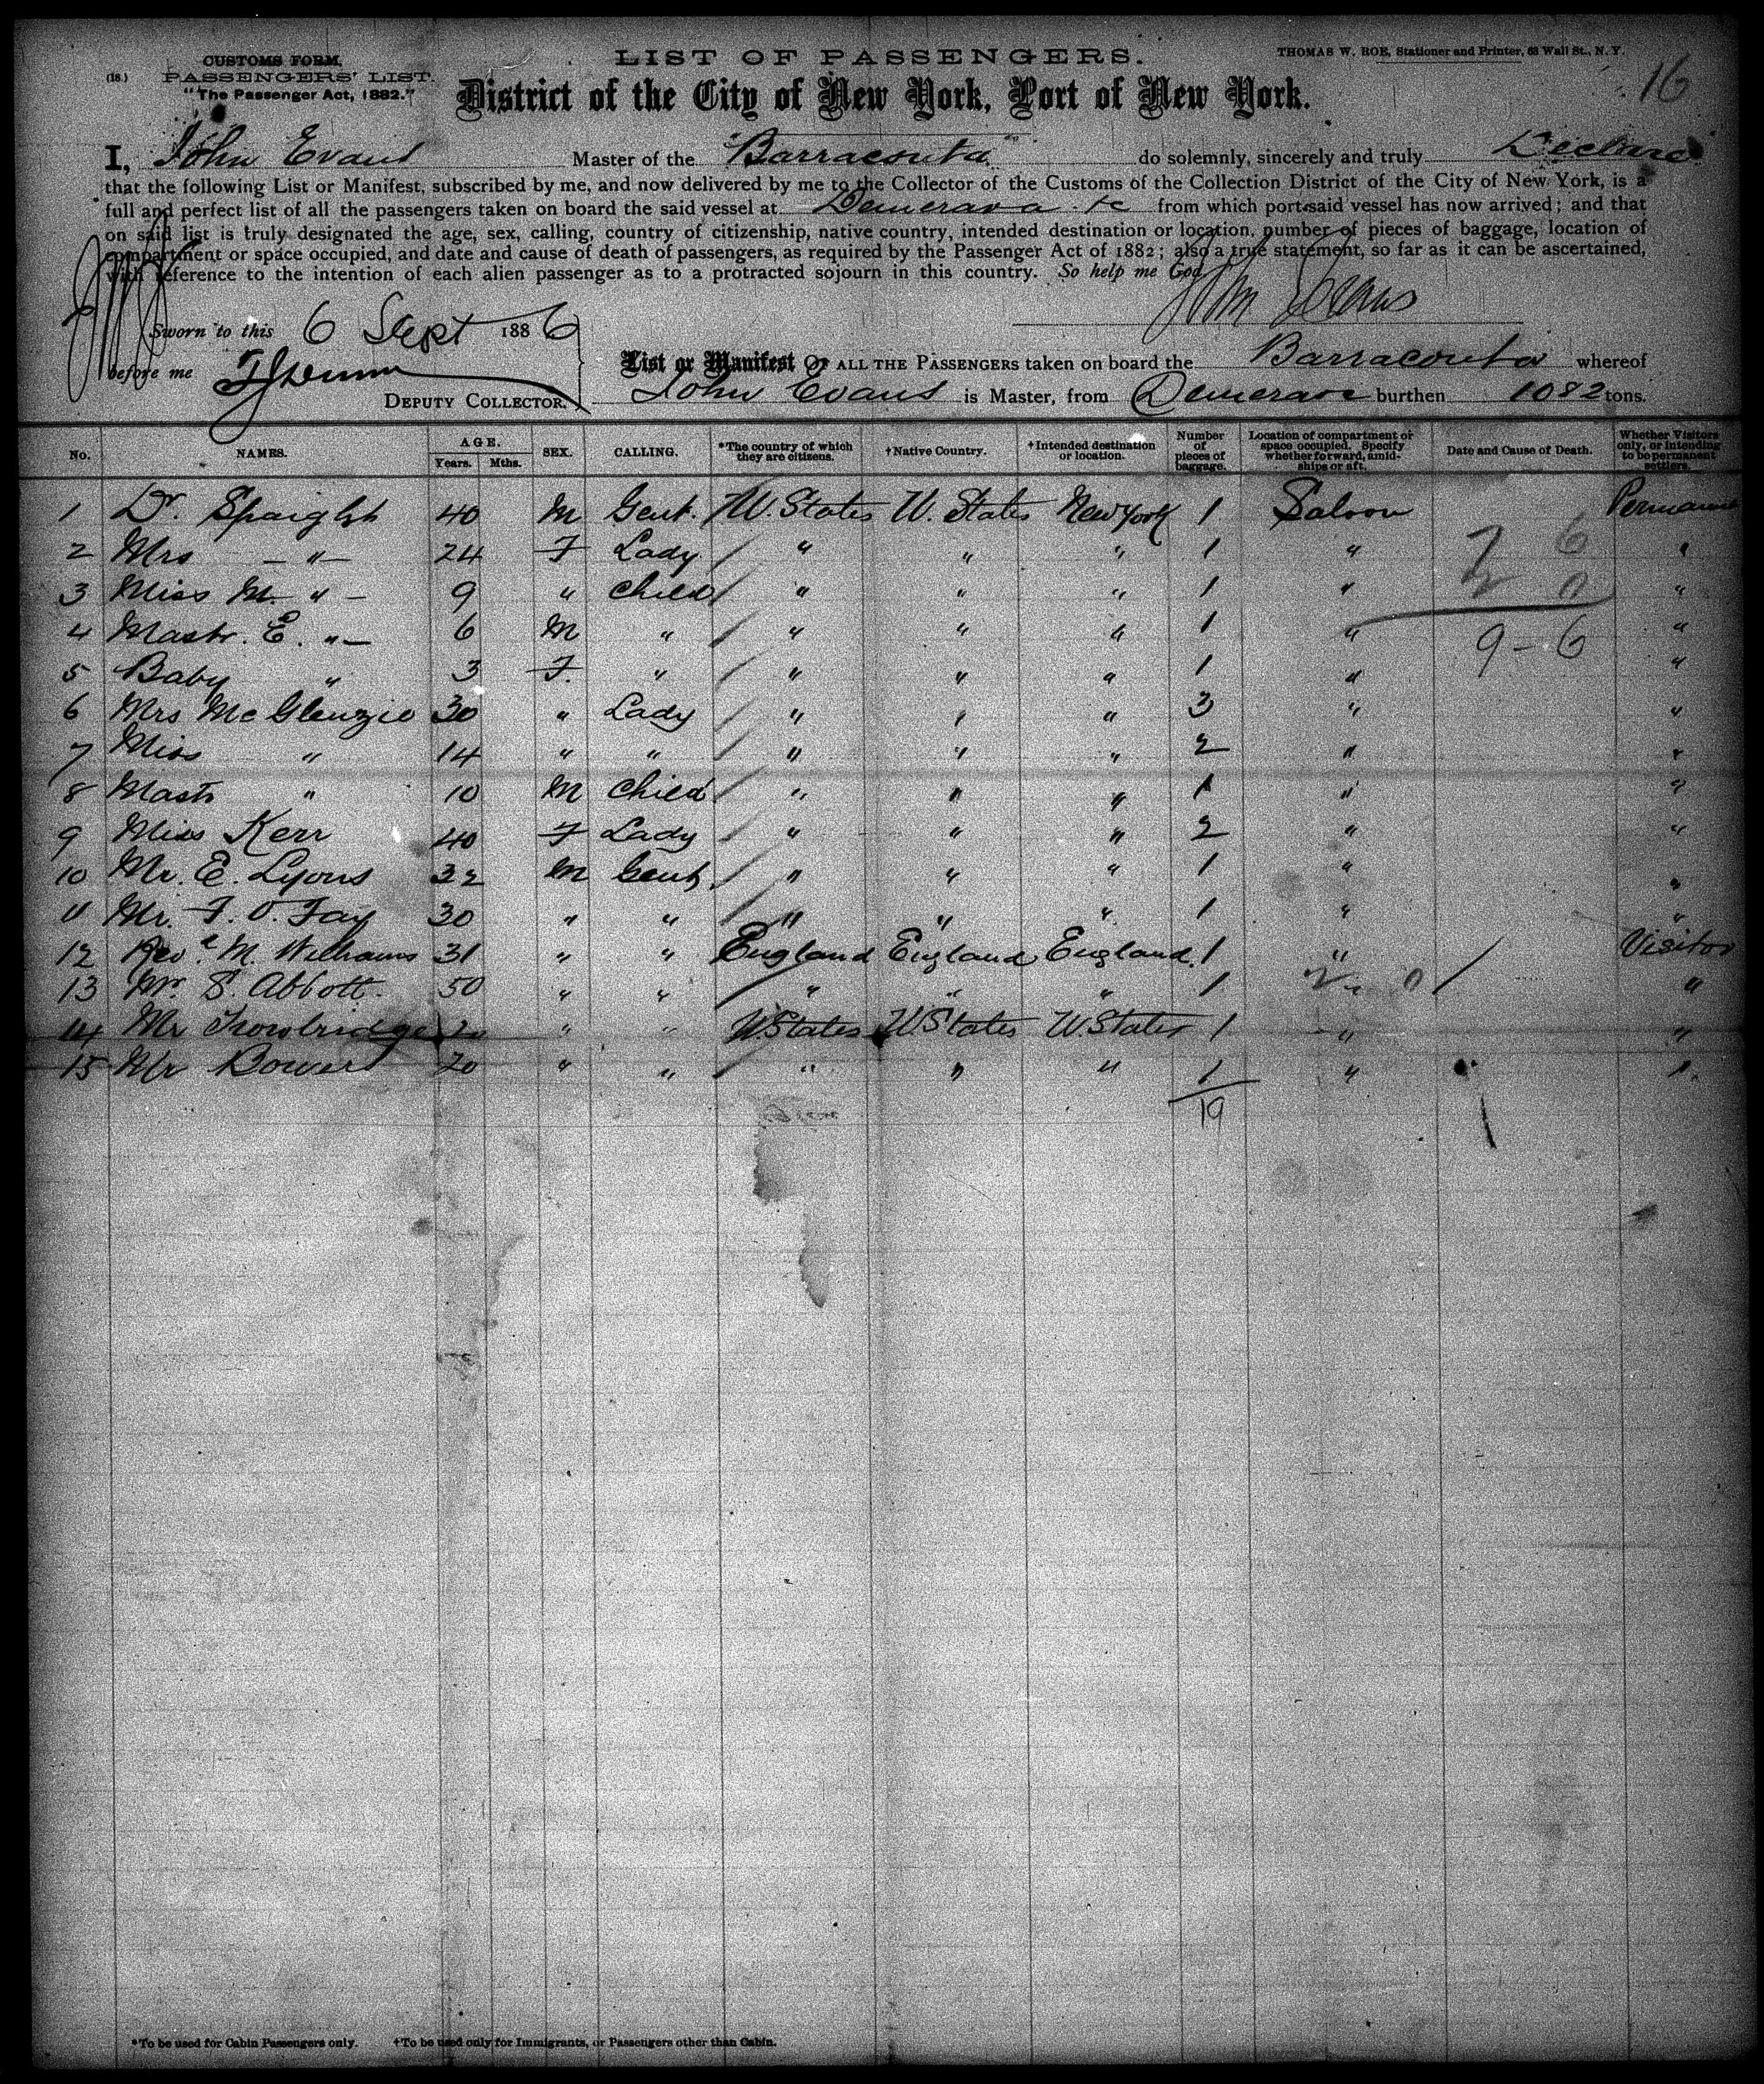 CUSTOMS FORM.
(18.) PASSENGERS' LIST.
"The Passenger Act, 1882."
LIST OF PASSENGERS.
THOMAS W. ROE, Stationer and Printer, 63 Wall St., N.Y.
16
District of the City of New York, Port of New York.
I, John Evans Master of the "Barracouta" do solemnly, sincerely and truly Declare
that the following List or Manifest, subscribed by me, and now delivered by me to the Collector of the Customs of the Collection District of the City of New York, is a
full and perfect list of all the passengers taken on board the said vessel at Demerara &c from which port said vessel has now arrived; and that
on said list is truly designated the age, sex, calling, country of citizenship, native country, intended destination or location, number of pieces of baggage, location of
compartment or space occupied, and date and cause of death of passengers, as required by the Passenger Act of 1882; also a true statement, so far as it can be ascertained,
with reference to the intention of each alien passenger as to a protracted sojourn in this country. So help me God
John Evans
Sworn to this 6 Sept 1886
before me
DEPUTY COLLECTOR.
List or Manifest OF ALL THE PASSENGERS taken on board the Barracouta whereof
John Evans is Master, from Demerara burthen 1082 tons.
No. NAMES. AGE. Years. Mths. SEX. CALLING. *The country of which they are citizens. †Native Country. †Intended destination or location. Number of pieces of baggage. Location of compartment or space occupied. Specify whether forward, amidships or aft. Date and Cause of Death. Whether Visitors only, or intending to be permanent settlers.
1 Dr. Spaight 40 M Gent. U. States U. States New York 1 Saloon Permanent
2 Mrs — " — 24 F Lady " " " 1 " 7 6 "
3 Miss M. " — 9 " Child " " " 1 " 2 0 "
4 Mastr. E. " — 6 M " " " " 1 " 9 - 6 "
5 Baby " 3 F. " " " " 1 " "
6 Mrs McGlenzie 30 " Lady " " " 3 " "
7 Miss " 14 " " " " " 2 " "
8 Mastr " 10 M Child " " " 1 " "
9 Miss Kerr 40 F Lady " " " 2 " "
10 Mr. E. Lyons 32 M Gent. " " " 1 " "
11 Mr. F. O. Fay 30 " " " " " 1 " "
12 Revd. M. Williams 31 " " England England England 1 " Visitor
13 Mr. S. Abbott. 50 " " " " " 1 " "
14 Mr Trowbridge 20 " " U. States U. States U States 1 " "
15 Mr Bower 20 " " " " " 1 " "
19
*To be used for Cabin Passengers only. †To be used only for Immigrants, or Passengers other than Cabin.